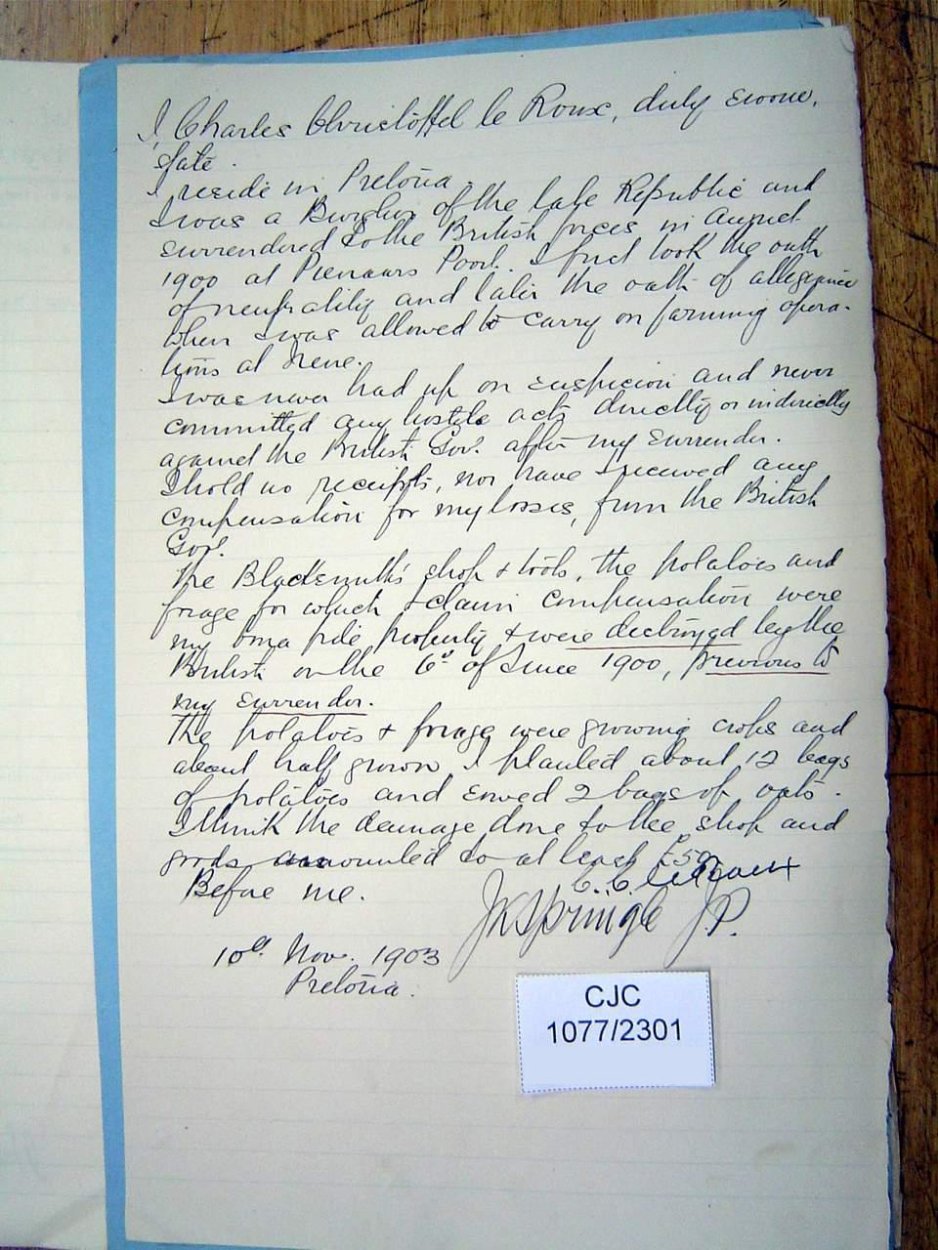 I, Charles Christoffel le Roux, duly sworn,
state.
I reside in Pretoria.
I was a Burgher of the late Republic and
surrendered to the British forces in August
1900 at Pienaars Poort. I first took the oath
of neutrality and later the oath of allegiance
when I was allowed to carry on farming opera-
tions at Irene.
I was never had up on suspicion and never
committed any hostile acts directly or indirectly
against the British Gov. after my surrender.
I hold no receipts, nor have I received any
compensation for my losses, from the British
Gov.
The Blacksmith's shop & tools, the potatoes and
forage for which I claim compensation were
my bona fide property & were destroyed by the
British on the 6th of June 1900, previous to
my surrender.
The potatoes & forage were growing crops and
about half grown I planted about 12 bags
of potatoes and sowed 2 bags of oats.
I think the damage done to the shop and
goods amounted to at least £50
C. C. le Roux
Before me.
J.P.
10th Nov. 1903
Pretoria.
CJC
1077/2301